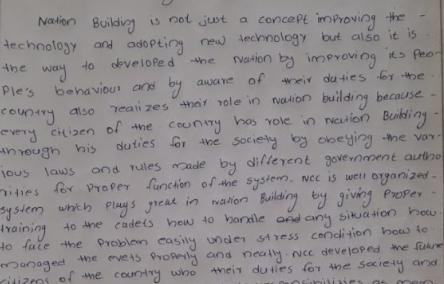 Nation Building is not just a concept improving the -
technology and adopting new technology but also it is
the way to developed the Nation by improving its Peo-
ple's behaviour and by aware of their duties for the
country also realizes their role in nation building because -
every citizen of the country has role in Nation Building -
through his duties for the society by obeying the var-
ious laws and rules made by different government autho
rities for Proper function of the system. NCC is well organized -
system which Plays great in nation Building by giving Proper -
training to the cadets how to handle any situation how
to face the Problem easily under stress condition how to
managed the evets Properly and neatly. NCC developed the future
citizens of the country who their duties for the society and